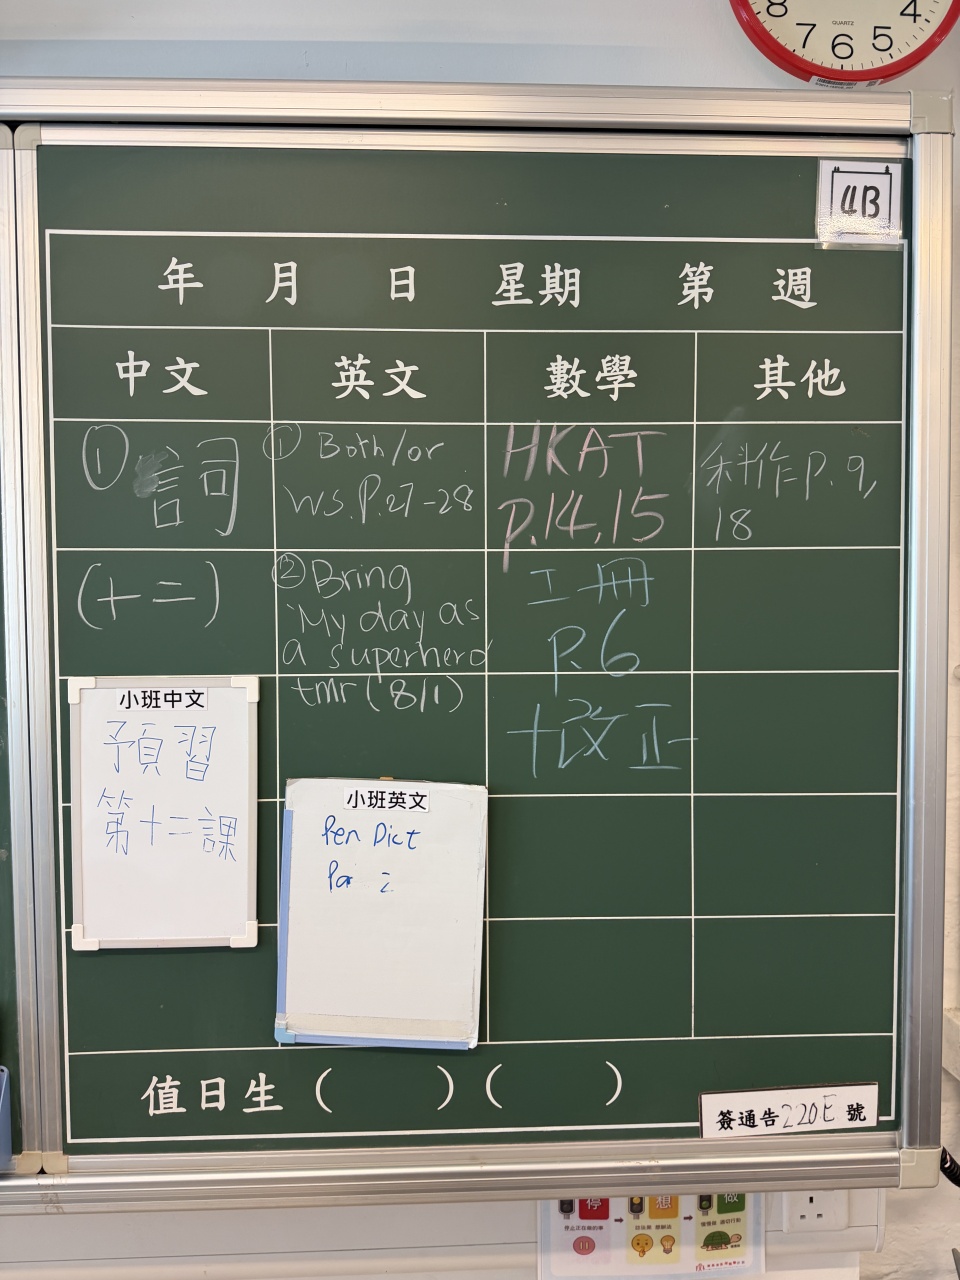 8 7 6 5 4
QUARTZ
4B
年 月 日 星期 第 週
中文 英文 數學 其他
① 詞
(十二)
① Both/or
WS.P.27-28
② Bring
"My day as
a superhero"
tmr (8/1)
HKAT
P.14,15
工冊
P.6
+改正
科作P.9,
18
小班中文
預習
第十二課
小班英文
Pen Dict
值日生 ( ) ( )
簽通告220E 號
停 想 做